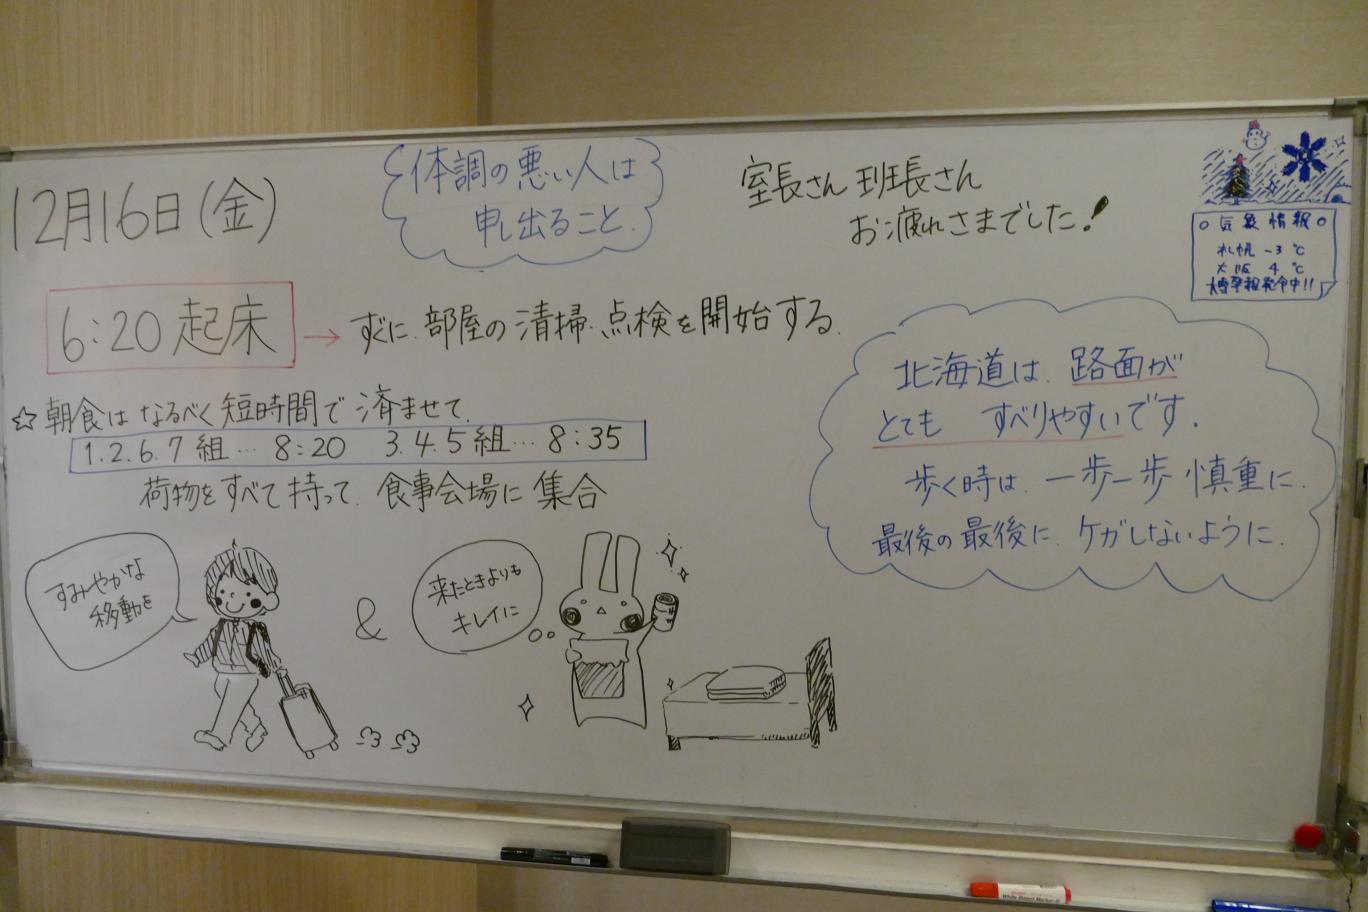 12月16日(金)
体調の悪い人は
申し出ること.
室長さん 班長さん
お疲れさまでした!
○気象情報○
札幌 -3℃
大阪 4℃
大雪警報発令中!!
6:20 起床 → すぐに. 部屋の清掃. 点検を開始する.
☆朝食は なるべく 短時間で 済ませて.
1.2.6.7組… 8:20 3.4.5組… 8:35
荷物を すべて 持って. 食事会場に 集合
北海道は. 路面が
とても すべりやすいです.
歩く時は. 一歩一歩 慎重に.
最後の最後に. ケガしないように.
すみやかな
移動を
&
来たときよりも
キレイに